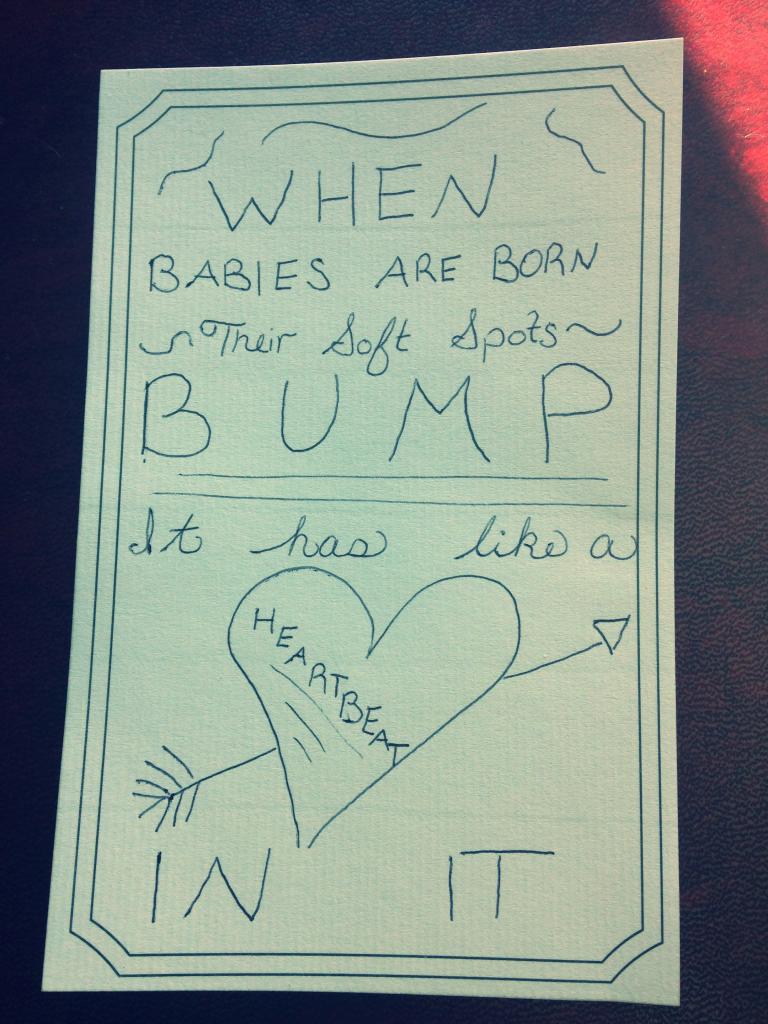 WHEN
BABIES ARE BORN
Their Soft Spots
BUMP
It has like a
HEARTBEAT
IN IT